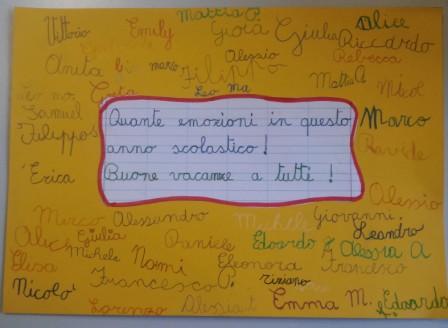 Mattia P.
Vittorio Emily Gioia Giulia Alice
Riccardo
Anita Alessio Rebecca
Filippo Mattia A Micol
Greta Leo Ma
Samuel
Filippo S
Marco
Davide
Erica
Quante emozioni in questo
anno scolastico!
Buone vacanze a tutti!
Alessio
Marco Alessandro Michele Giovanni
Alice Giulia Daniele Edoardo Leandro
Michele Alessia A
Elisa Nomi Eleonora Francesco
Francesco P. Tiziano
Nicolò Emma M. Edoardo
Lorenzo Alessia